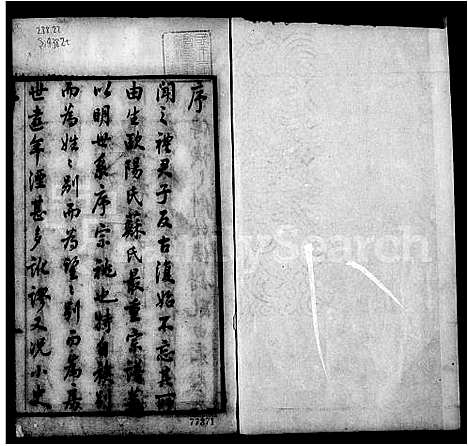 序
聞之禮君子反古復始不忘其所
由生歐陽氏蘇氏最重宗譜蓋
以明世系序宗祧也特自族別
而為姓姓別而為望望別而為房
世遠年湮甚多訛謬又況小史
77871
FamilySearch